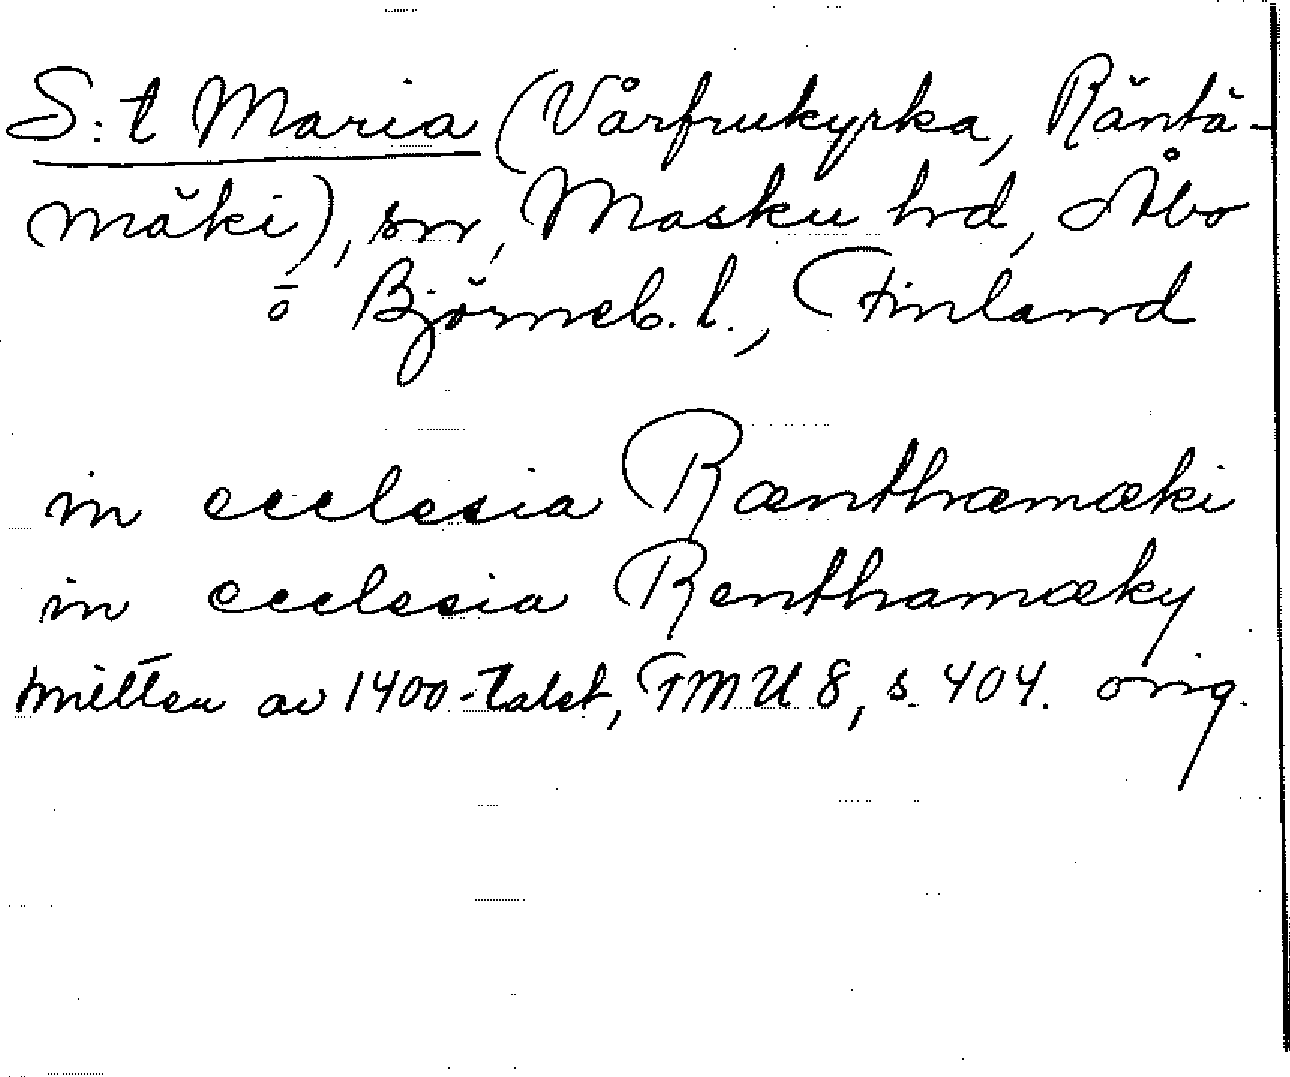 S:t Maria (Vårfrukyrka, Räntä-
mäki), sn, Masku hd, Åbo
o Björneb. l., Finland
in ecclesia Rænthæmæki
in ecclesia Renthamæky
mitten av 1400-talet, FMU 8, s. 404. orig.